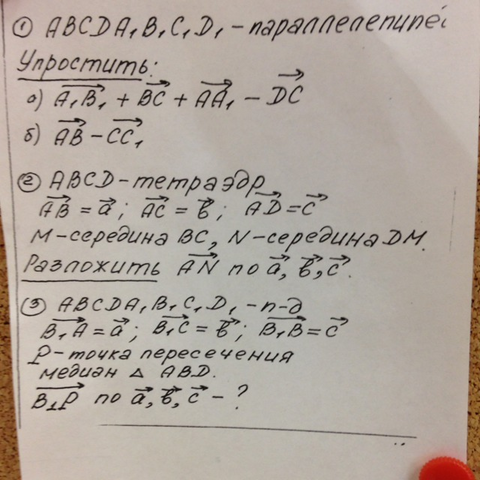 ① ABCDA₁B₁C₁D₁ - параллелепипед
Упростить:
а) A₁B₁ + BC + AA₁ - DC
б) AB - CC₁
② ABCD - тетраэдр
AB = a; AC = b; AD = c
M - середина BC, N - середина DM.
Разложить AN по a, b, c.
③ ABCDA₁B₁C₁D₁ - п-д
B₁A = a; B₁C = b; B₁B = c
P - точка пересечения
медиан △ ABD.
B₁P по a, b, c - ?